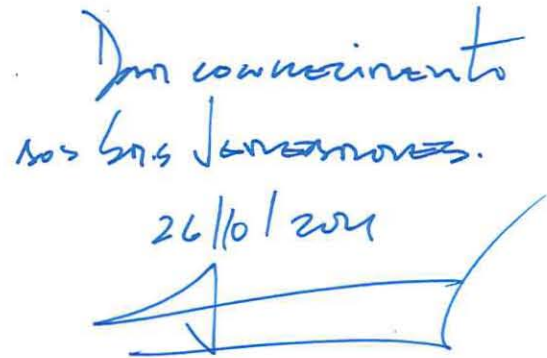 Dar conhecimento
aos Srs Vereadores.
26/10/2021